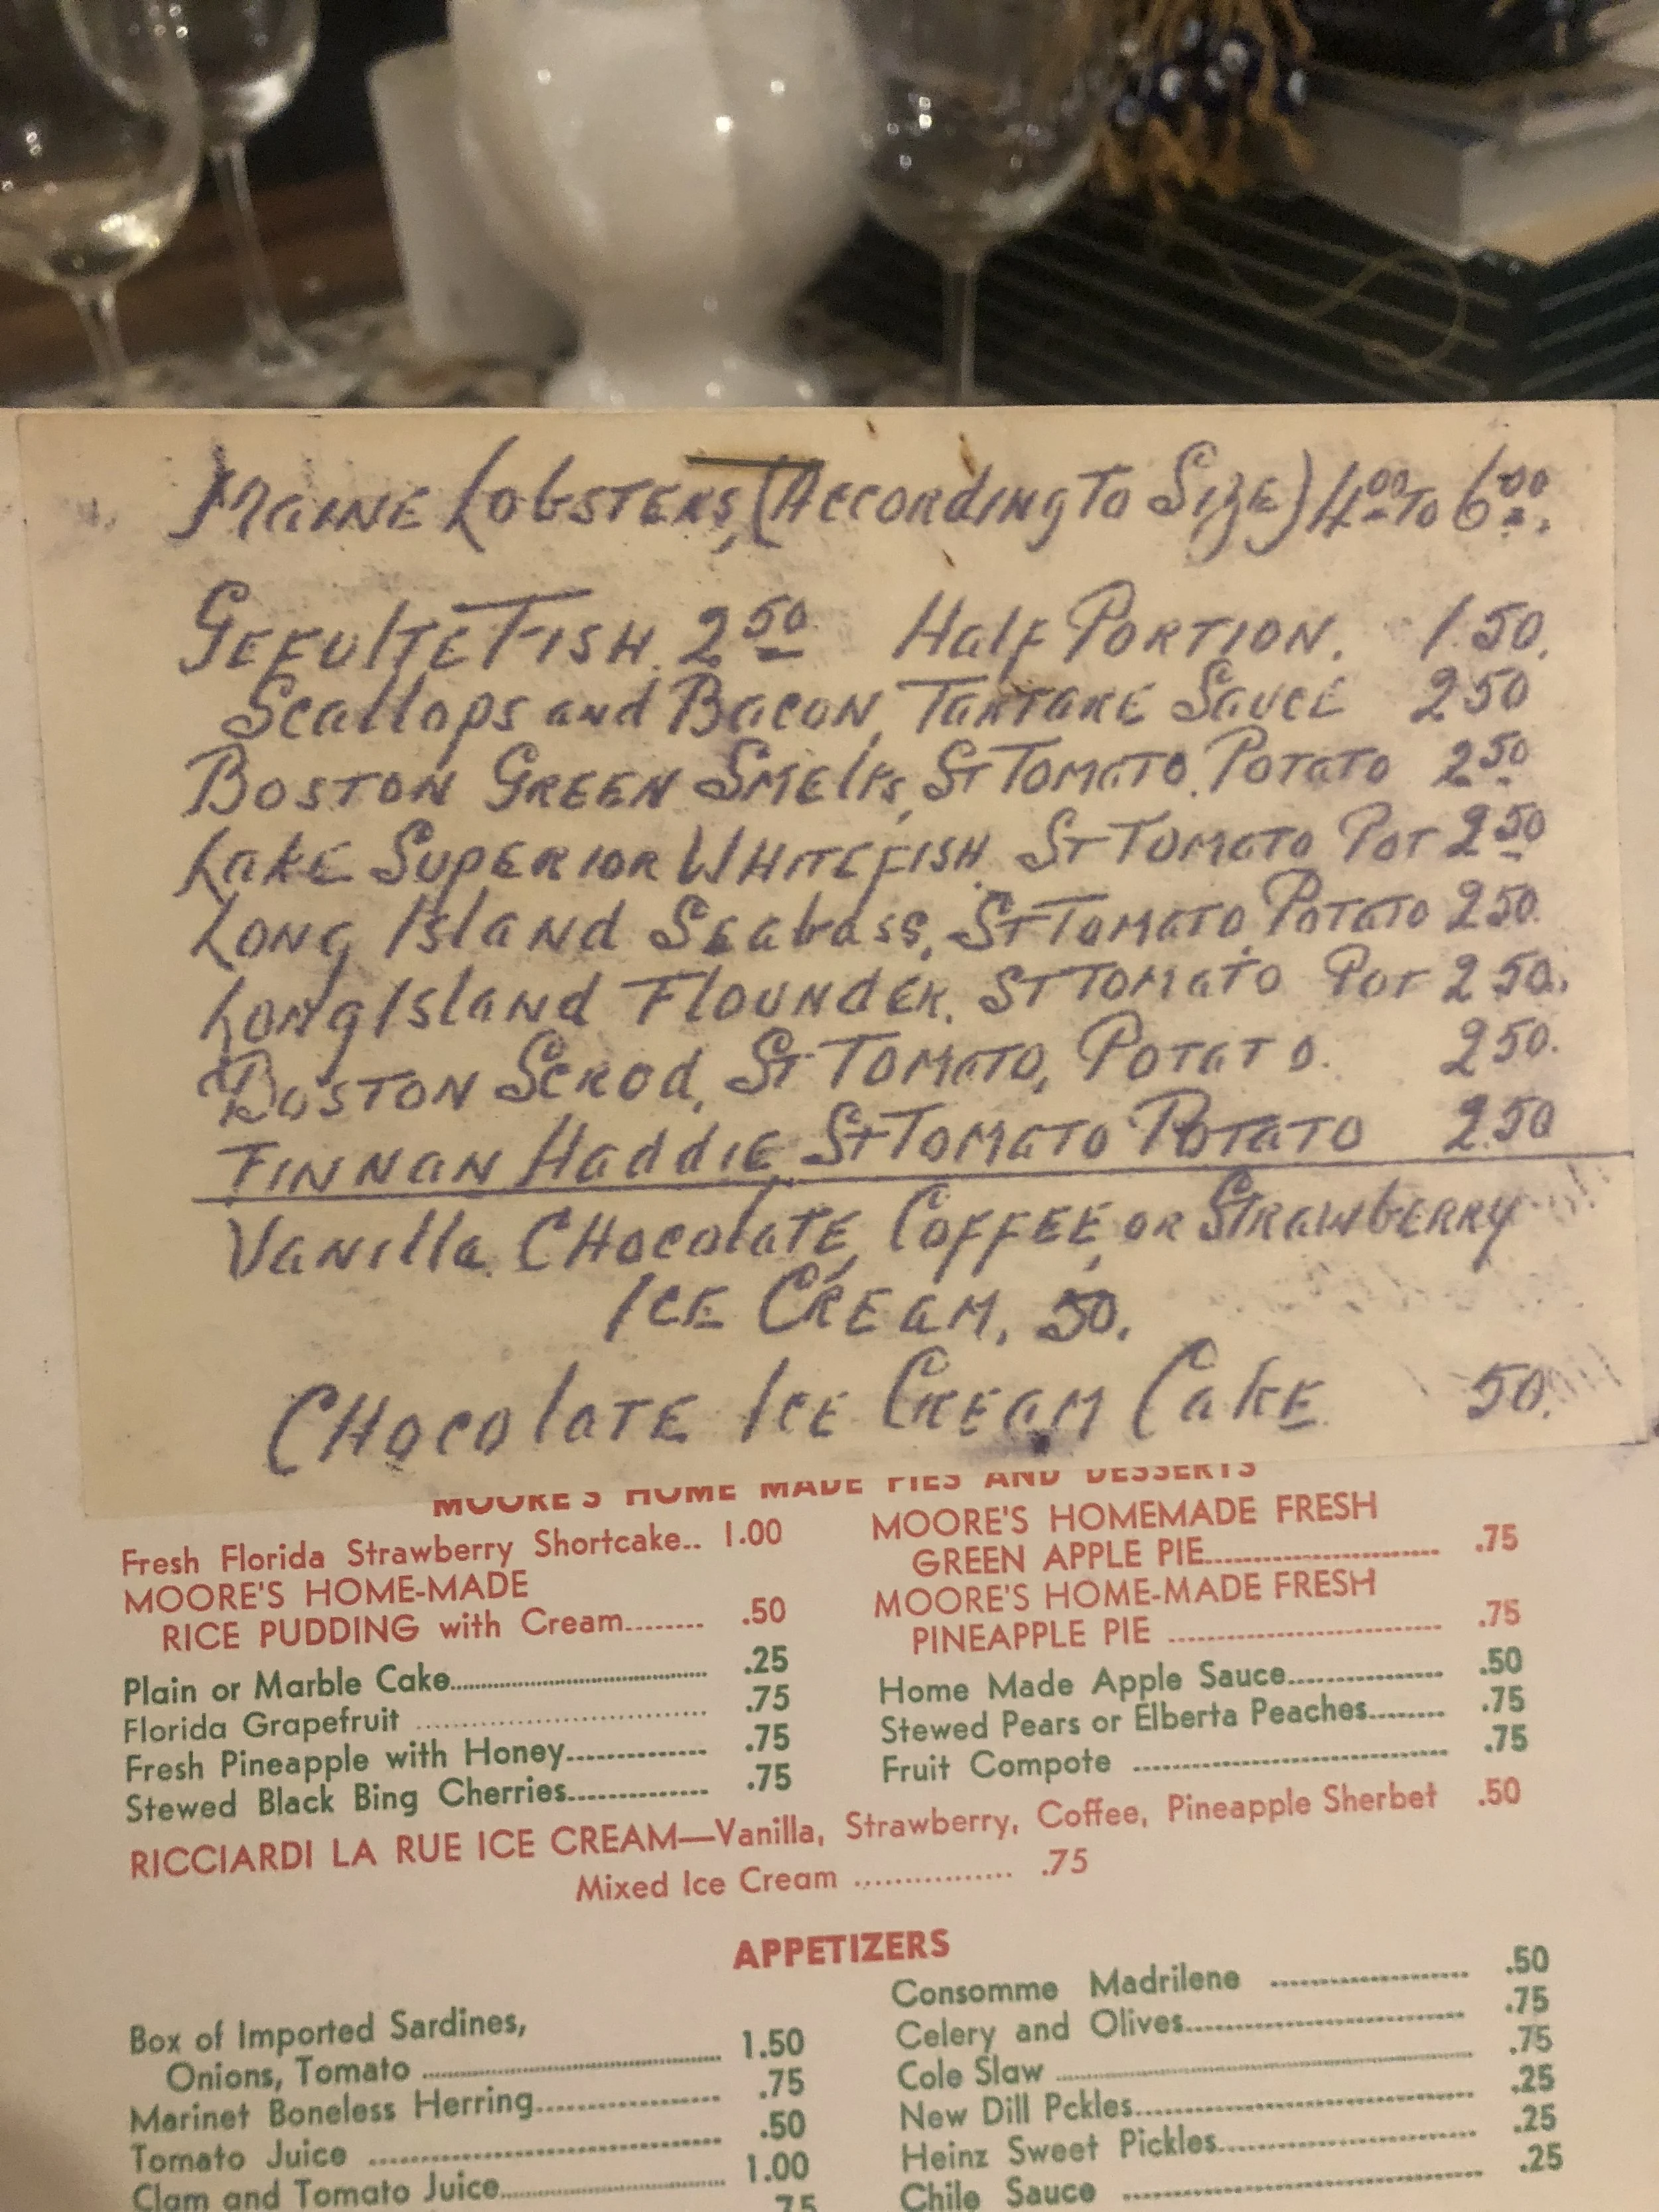 Maine Lobsters, (According To Size) 4.00 To 6.00.
Gefulte Fish. 2.50 Half Portion. 1.50.
Scallops and Bacon, Tartare Sauce 2.50
Boston Green Smelts, St Tomato. Potato 2.50
Lake Superior Whitefish. St Tomato Pot 2.50
Long Island Seabass, St Tomato, Potato 2.50.
Long Island Flounder. St Tomato Pot 2.50.
Boston Scrod, St Tomato, Potato. 2.50.
Finnan Haddie St Tomato Potato 2.50
Vanilla, Chocolate, Coffee, or Strawberry
Ice Cream, 50.
Chocolate Ice Cream Cake 50.
MOORE'S HOME MADE PIES AND DESSERTS
Fresh Florida Strawberry Shortcake.. 1.00
MOORE'S HOME-MADE
RICE PUDDING with Cream........ .50
Plain or Marble Cake........ .25
Florida Grapefruit ........ .75
Fresh Pineapple with Honey........ .75
Stewed Black Bing Cherries........ .75
MOORE'S HOMEMADE FRESH
GREEN APPLE PIE........ .75
MOORE'S HOME-MADE FRESH
PINEAPPLE PIE ........ .75
Home Made Apple Sauce........ .50
Stewed Pears or Elberta Peaches........ .75
Fruit Compote ........ .75
RICCIARDI LA RUE ICE CREAM—Vanilla, Strawberry, Coffee, Pineapple Sherbet .50
Mixed Ice Cream ........ .75
APPETIZERS
Box of Imported Sardines,
Onions, Tomato ........ 1.50
Marinet Boneless Herring........ .75
Tomato Juice ........ .50
Clam and Tomato Juice........ 1.00
.75
Consomme Madrilene ........ .50
Celery and Olives........ .75
Cole Slaw ........ .75
New Dill Pckles........ .25
Heinz Sweet Pickles........ .25
Chile Sauce ........ .25